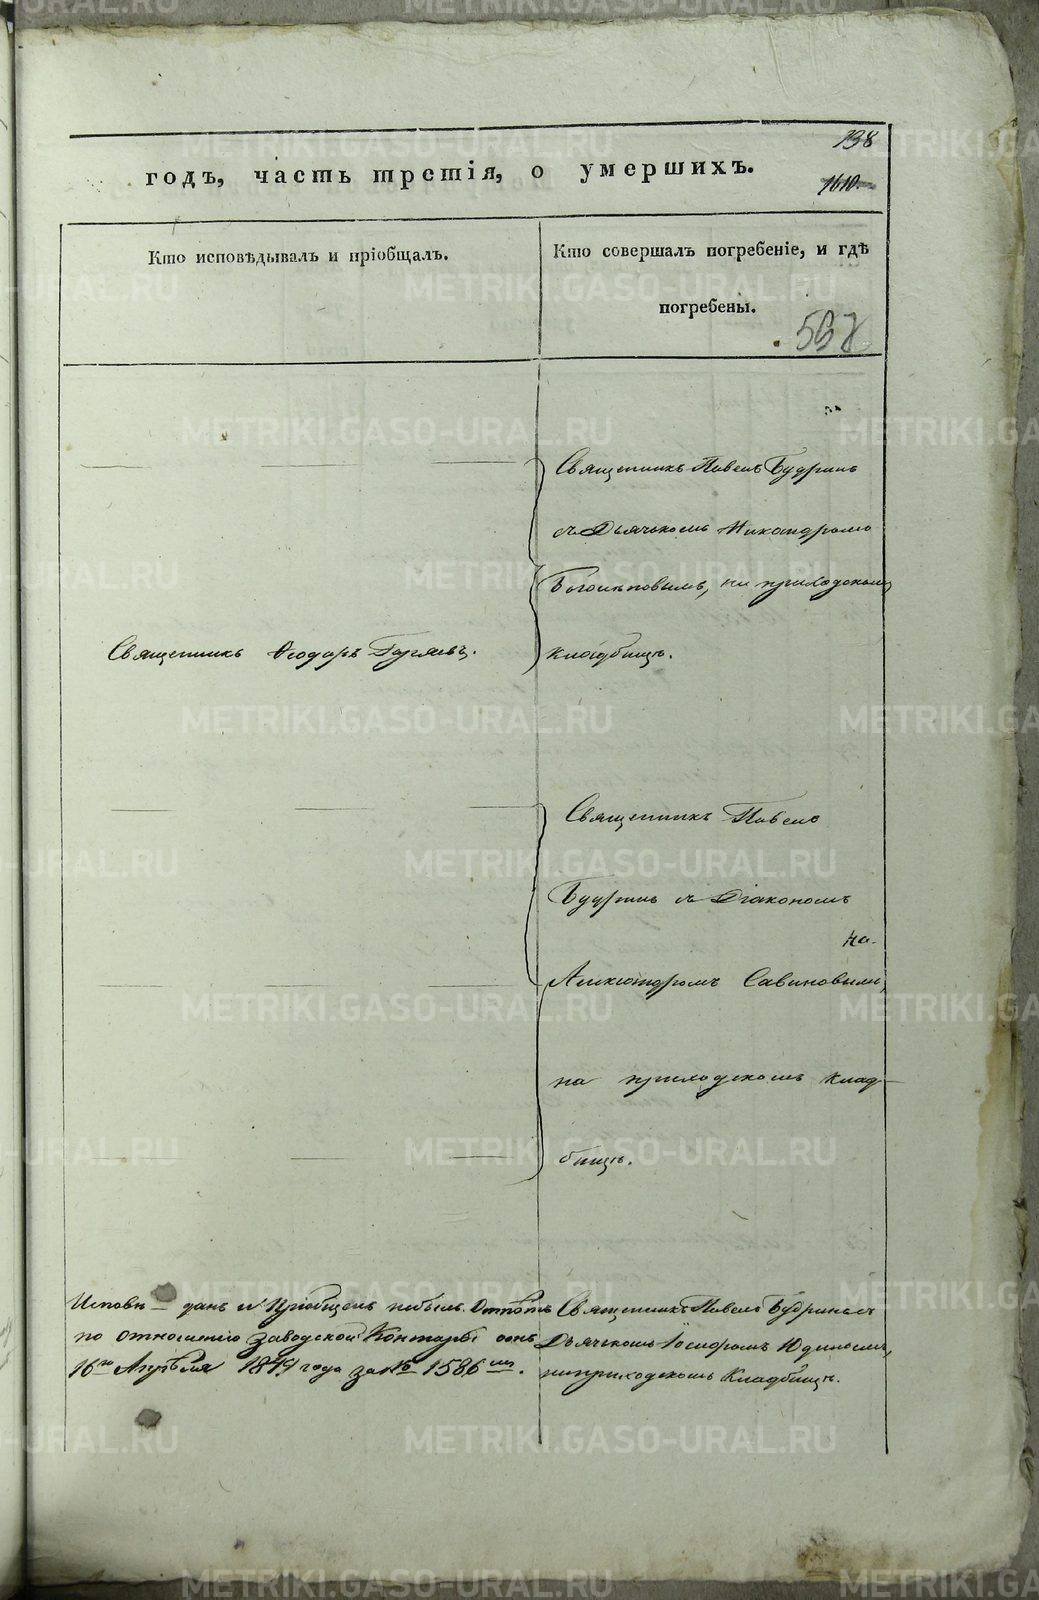 138
годъ, часть третія, о умершихъ.
1610.
Кто исповѣдывалъ и пріобщалъ.
Кто совершалъ погребеніе, и гдѣ
погребены.
567
Священникъ Павелъ Будринъ
съ Дьячькомъ Никандромъ
на приходскомъ
Священникъ Ѳеодоръ
кладбищѣ.
Священникъ Павелъ
Будринъ съ Діакономъ
на
Александромъ Савиновымъ,
на приходскомъ клад-
бищѣ.
Исповѣ - данъ и Пріобщенъ небылъ. Отпѣтъ
по отношенію Заводской Конторы отъ
16го Апрѣля 1849 года за № 1586мъ.
Священникъ Павелъ Будринъ съ
Дьячкомъ Іосифомъ Юдинымъ,
на приходскомъ Кладбищѣ.
METRIKI.GASO-URAL.RU